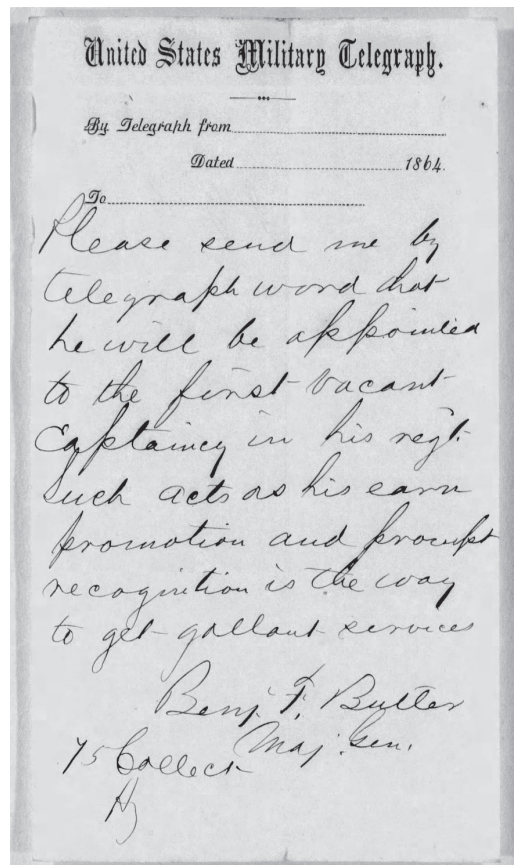 United States Military Telegraph.
By Telegraph from
Dated 1864.
To
Please send me by
telegraph word that
he will be appointed
to the first vacant
Captaincy in his regt.
Such acts as his earn
promotion and prompt
recognition is the way
to get gallant services
Benj. F. Butler
Maj. Gen.
75 Collect